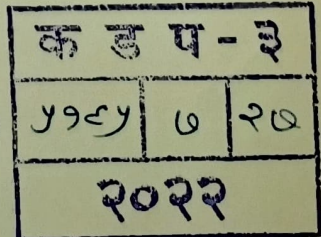 क ड प - ३
५१९५ ७ २७
२०२२